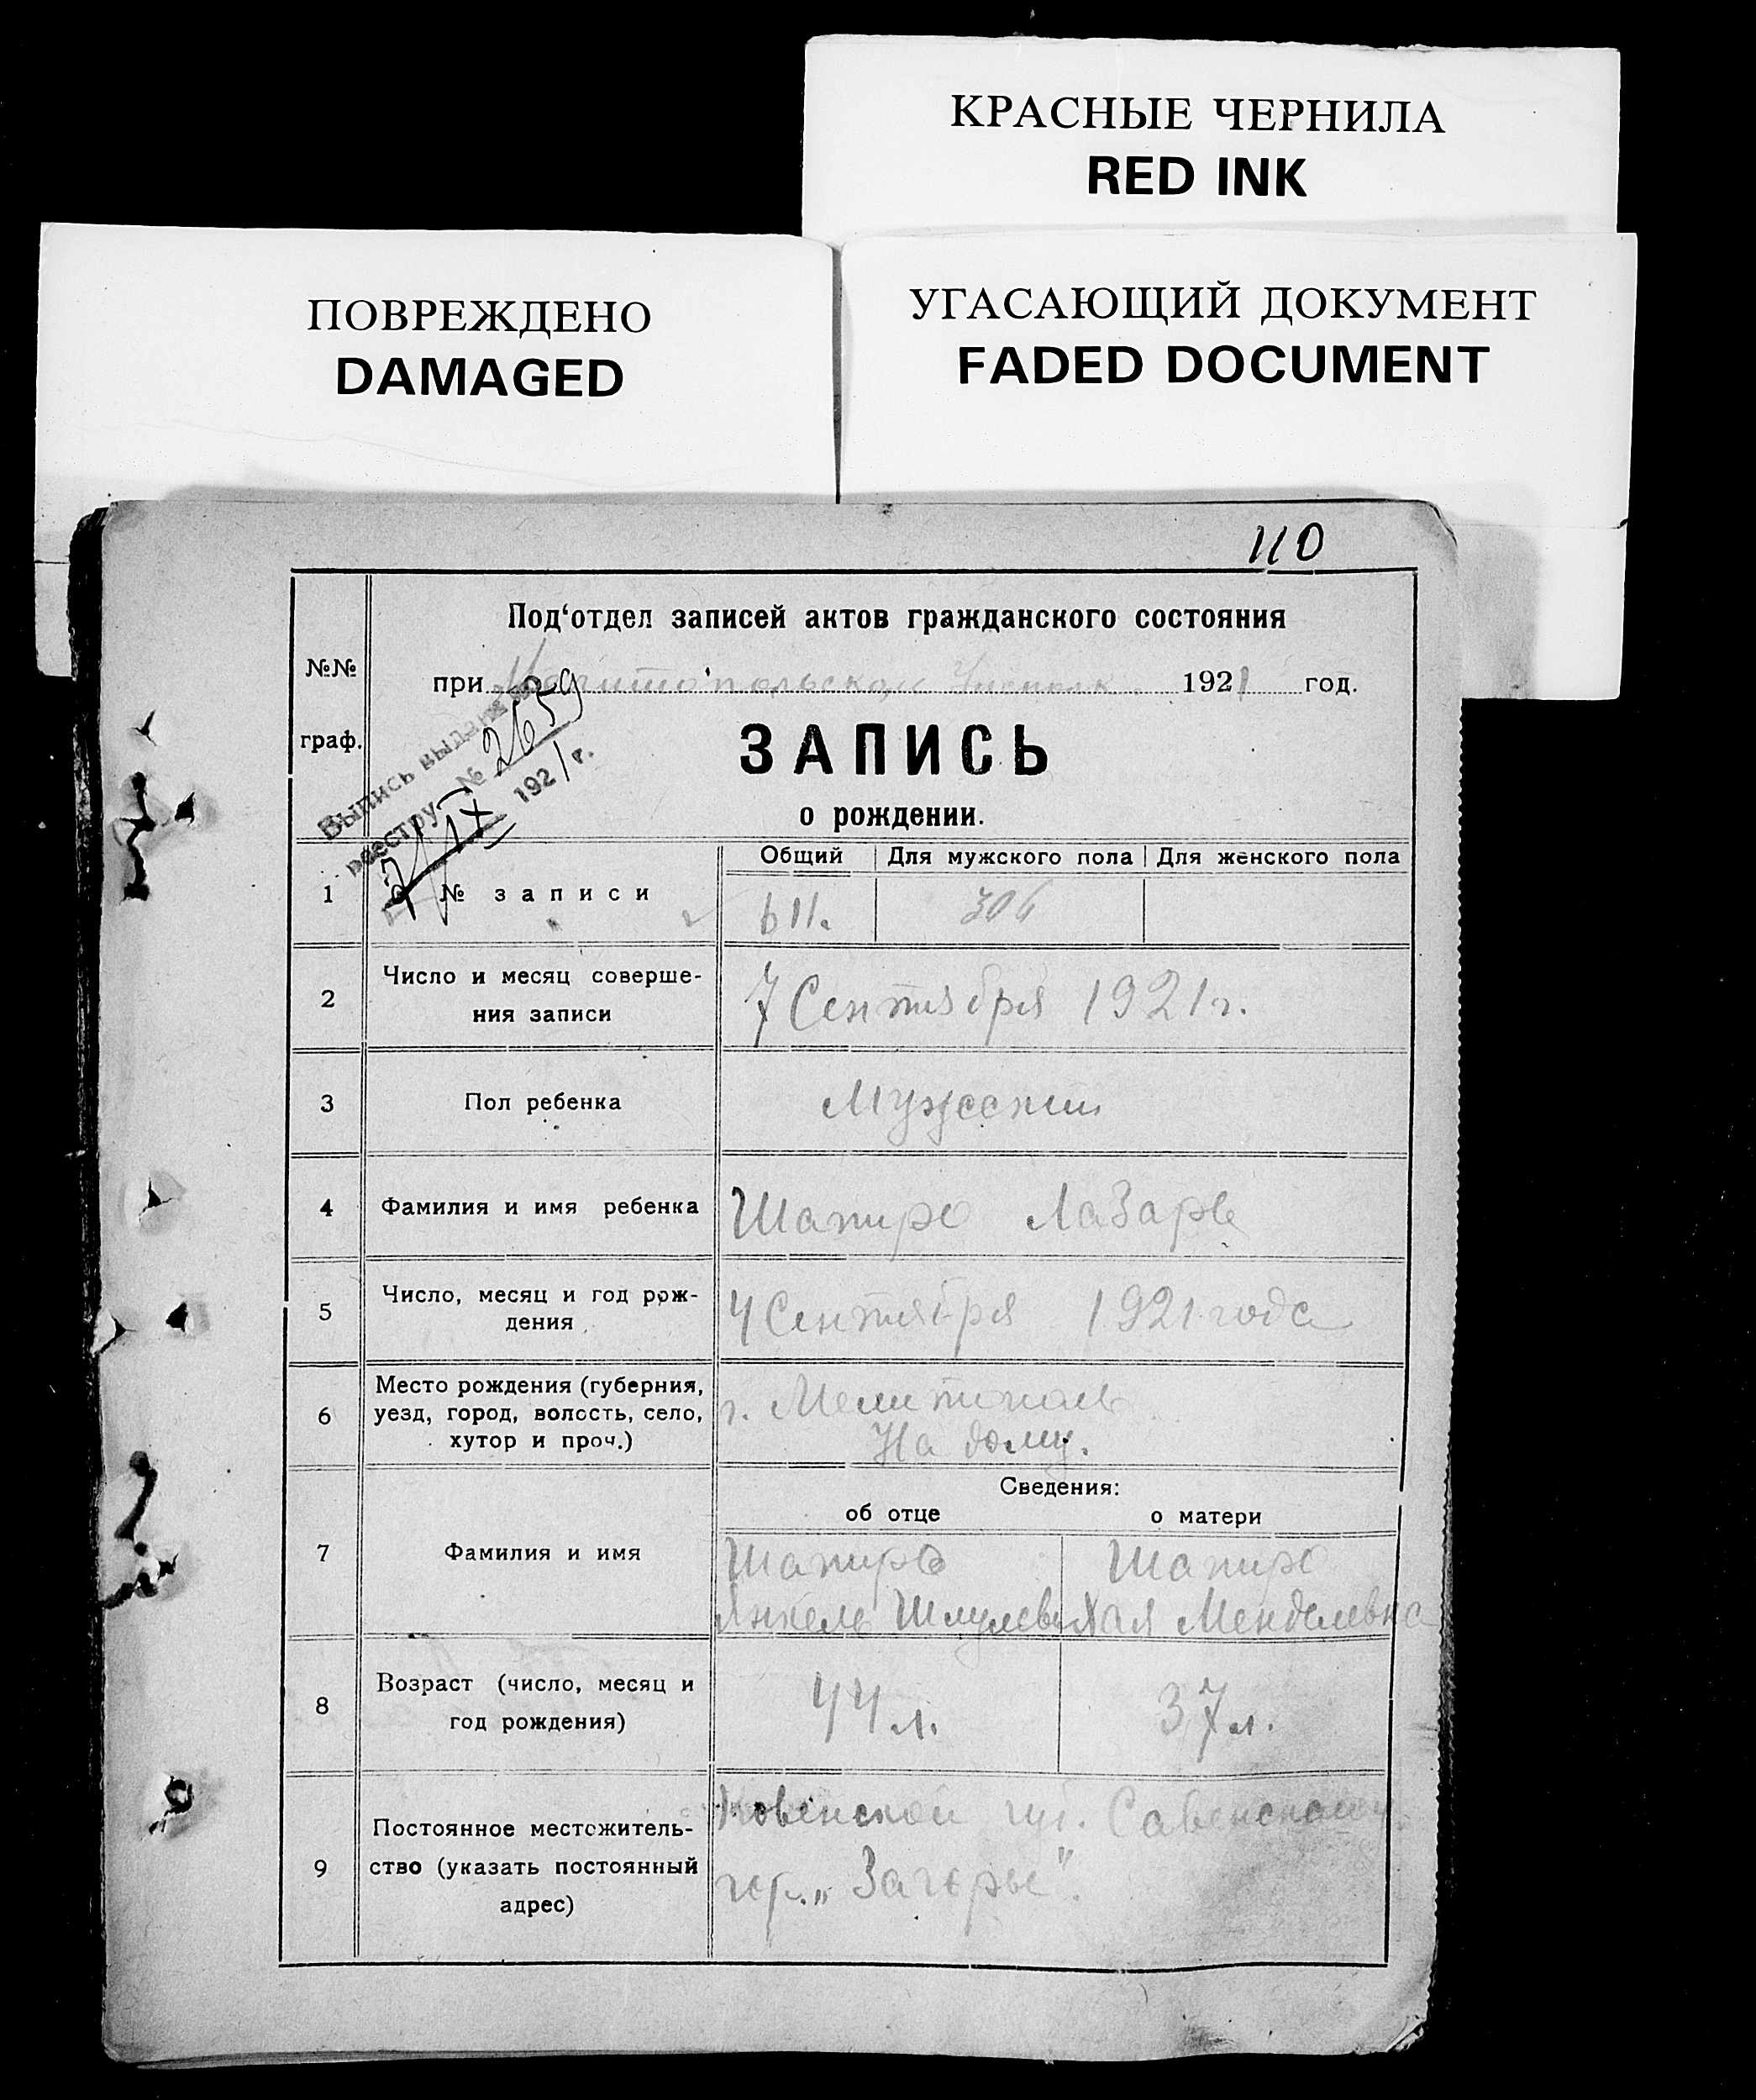 КРАСНЫЕ ЧЕРНИЛА
RED INK
ПОВРЕЖДЕНО
DAMAGED
УГАСАЮЩИЙ ДОКУМЕНТ
FADED DOCUMENT
110
№№ граф.
Под‘отдел записей актов гражданского состояния
при 1921 год.
ЗАПИСЬ
о рождении.
Выпись выдана
реестру № 2659
7/IX 1921 г.
Общий Для мужского пола Для женского пола
1 № записи 611. 306
2 Число и месяц соверше-
ния записи
7 Сентября 1921 г.
3 Пол ребенка Мужеский
4 Фамилия и имя ребенка Шапиро Лазарь
5 Число, месяц и год рож-
дения
4 Сентября 1921 года
6 Место рождения (губерния,
уезд, город, волость, село,
хутор и проч.)
г. Мелитополь
На дому.
Сведения:
об отце о матери
7 Фамилия и имя
Шапиро Шапиро
Янкель Шмулев Хая Менделевна
8 Возраст (число, месяц и
год рождения)
44 л. 37 л.
9 Постоянное местожитель-
ство (указать постоянный
адрес)
Ковенской губ.
„Загорье”.